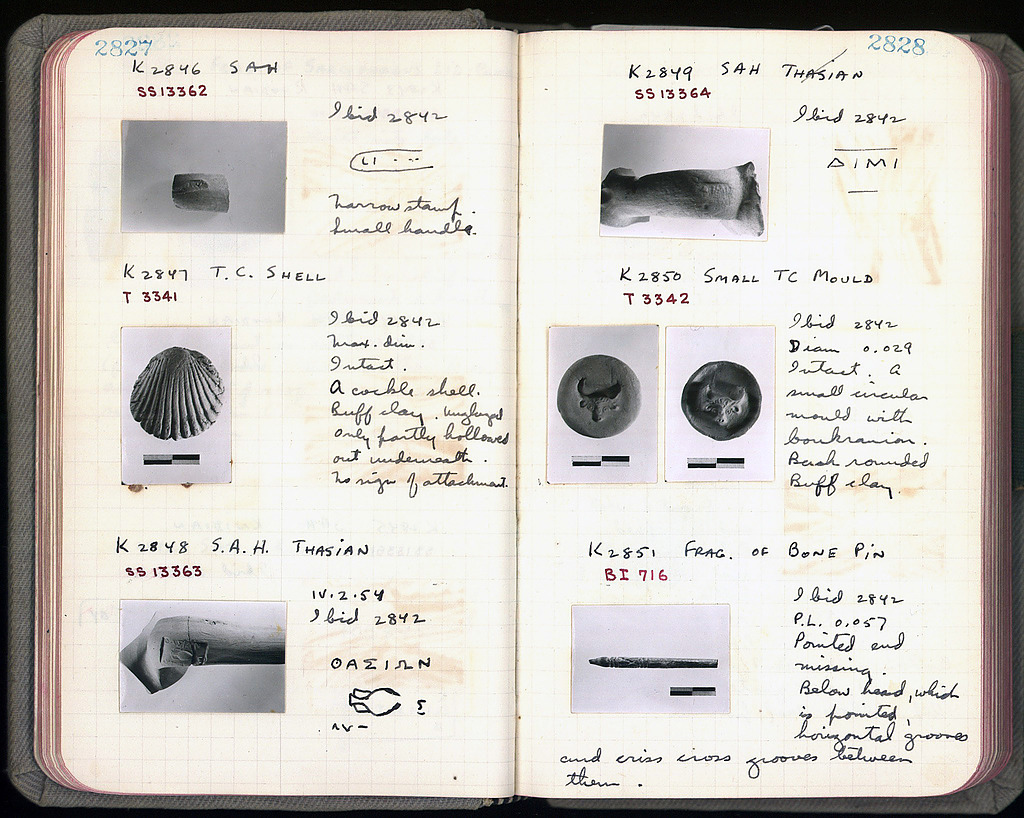 2827
K 2846 SAH
SS 13362
Ibid 2842
LI . ...
Narrow stamp.
Small handle.
K 2847 T.C. SHELL
T 3341
Ibid 2842
Max. dim.
Intact.
A cockle shell.
Buff clay. Unglazed
only partly hollowed
out underneath.
No sign of attachment.
K 2848 S.A.H. THASIAN
SS 13363
IV.2.54
Ibid 2842
ΘΑΣΙΩΝ
Σ
2828
K 2849 SAH THASIAN
SS 13364
Ibid 2842
ΔΙΜΙ
K 2850 SMALL TC MOULD
T 3342
Ibid 2842
Diam 0.029
Intact. A
small circular
mould with
boukranion.
Back rounded
Buff clay.
K 2851 FRAG. OF BONE PIN
BI 716
Ibid 2842
P.L. 0.057
Pointed end
missing.
Below head, which
is pointed,
horizontal grooves
and criss cross grooves between
them.